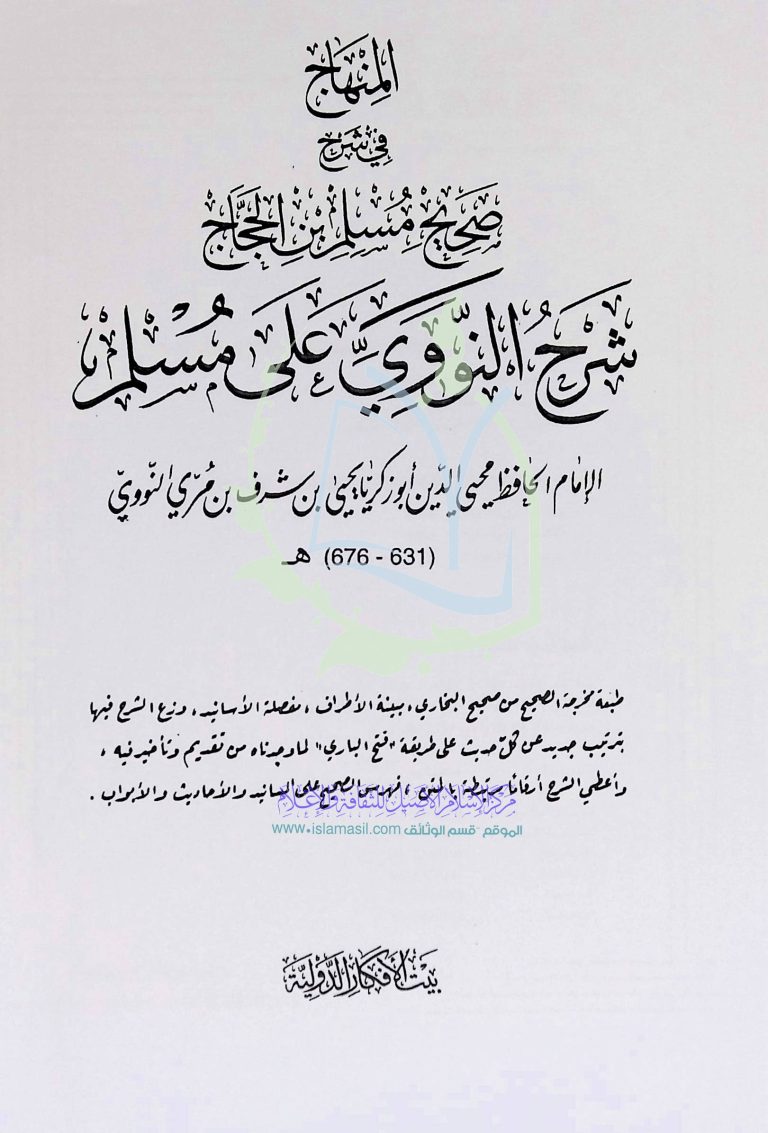 المِنْهَاج
في شَرح
صَحِيحِ مُسْلِمِ ابْنِ الحَجَّاج
شَرْحُ النَّوَوِيِّ عَلَى مُسْلِم
الإمام الحافظ محيي الدّين أبو زكريّا يحيى بن شرف بن مُرّي النّوويّ
(631 - 676) هـ
طبعة مخرجة الصحيح من صحيح البخاري، مبينة الأطراف، مفصلة الأسانيد، وزع الشرح فيها
بترتيب جديد عن كلّ حديث على طريقة "فتح الباري" لما وجدناه من تقديم وتأخير فيه،
وأعطي الشرح أرقامًا مرتبطة بالمتن، فهرس الصحيح على المسانيد والأحاديث والأبواب.
مركز الإسلام الأصيل للثقافة والإعلام
الموقع - قسم الوثائق www.islamasil.com
بَيت الأفكار الدَّوليَّة